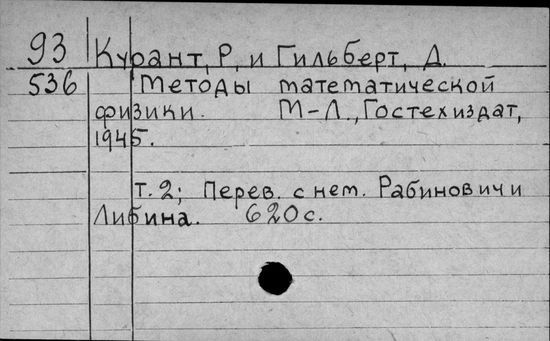 93 Курант, Р. и Гильберт, Д.
536 Методы математической
физики. М-Л., Гостехиздат,
1945.
т. 2; Перев. с нем. Рабинович и
Либина. 620 с.